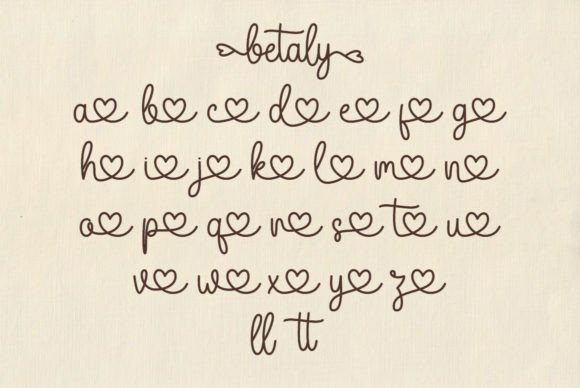 betaly
a b c d e f g
h i j k l m n
o p q r s t u
v w x y z
ll tt